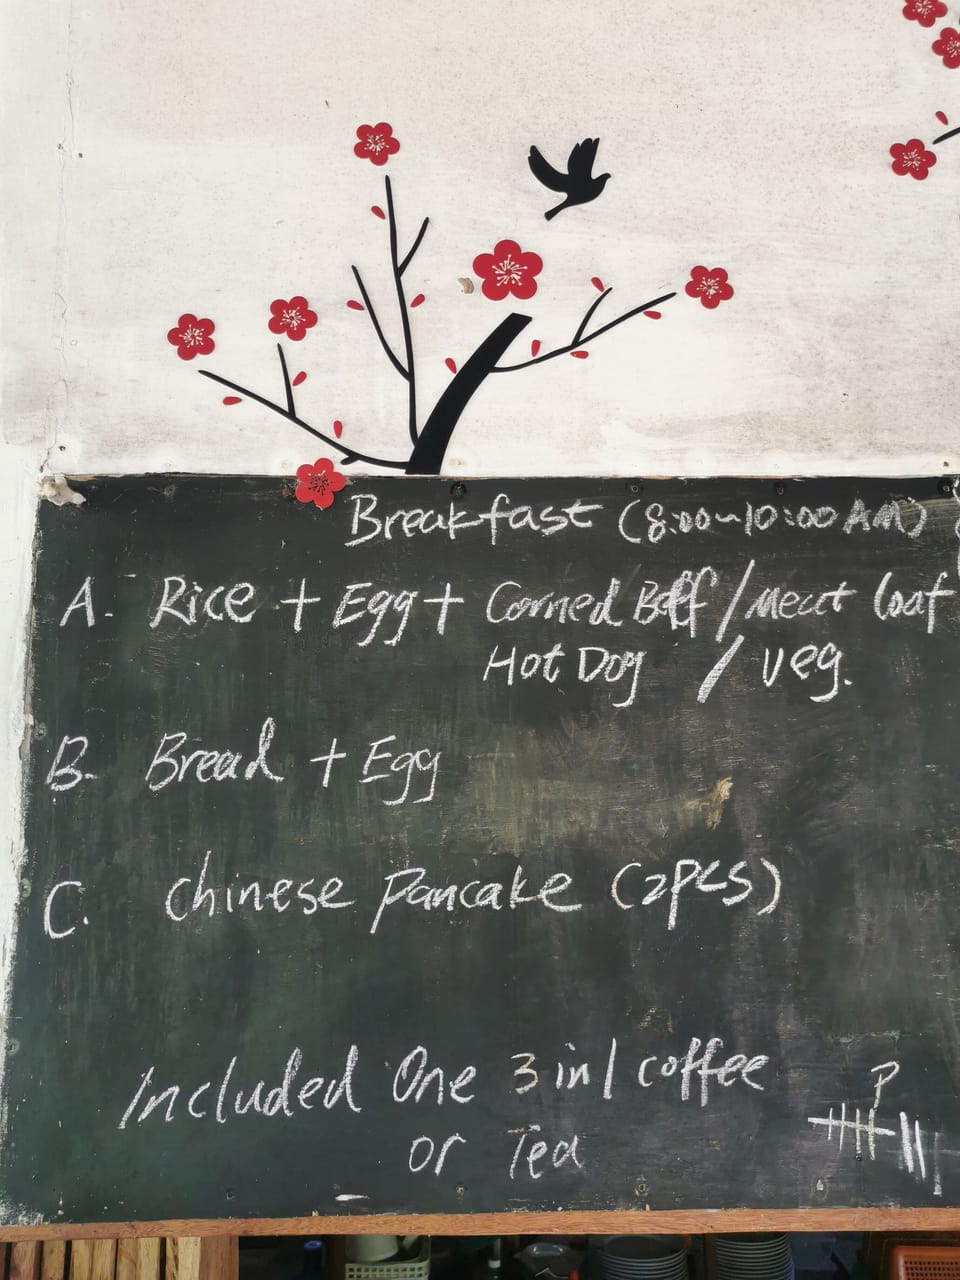 Breakfast (8:00~10:00 AM)
A. Rice + Egg + Corned Beff / Meat loaf
Hot Dog / Veg.
B. Bread + Egg
C. Chinese Pancake (2pcs)
Included One 3 in 1 coffee
or Tea
P